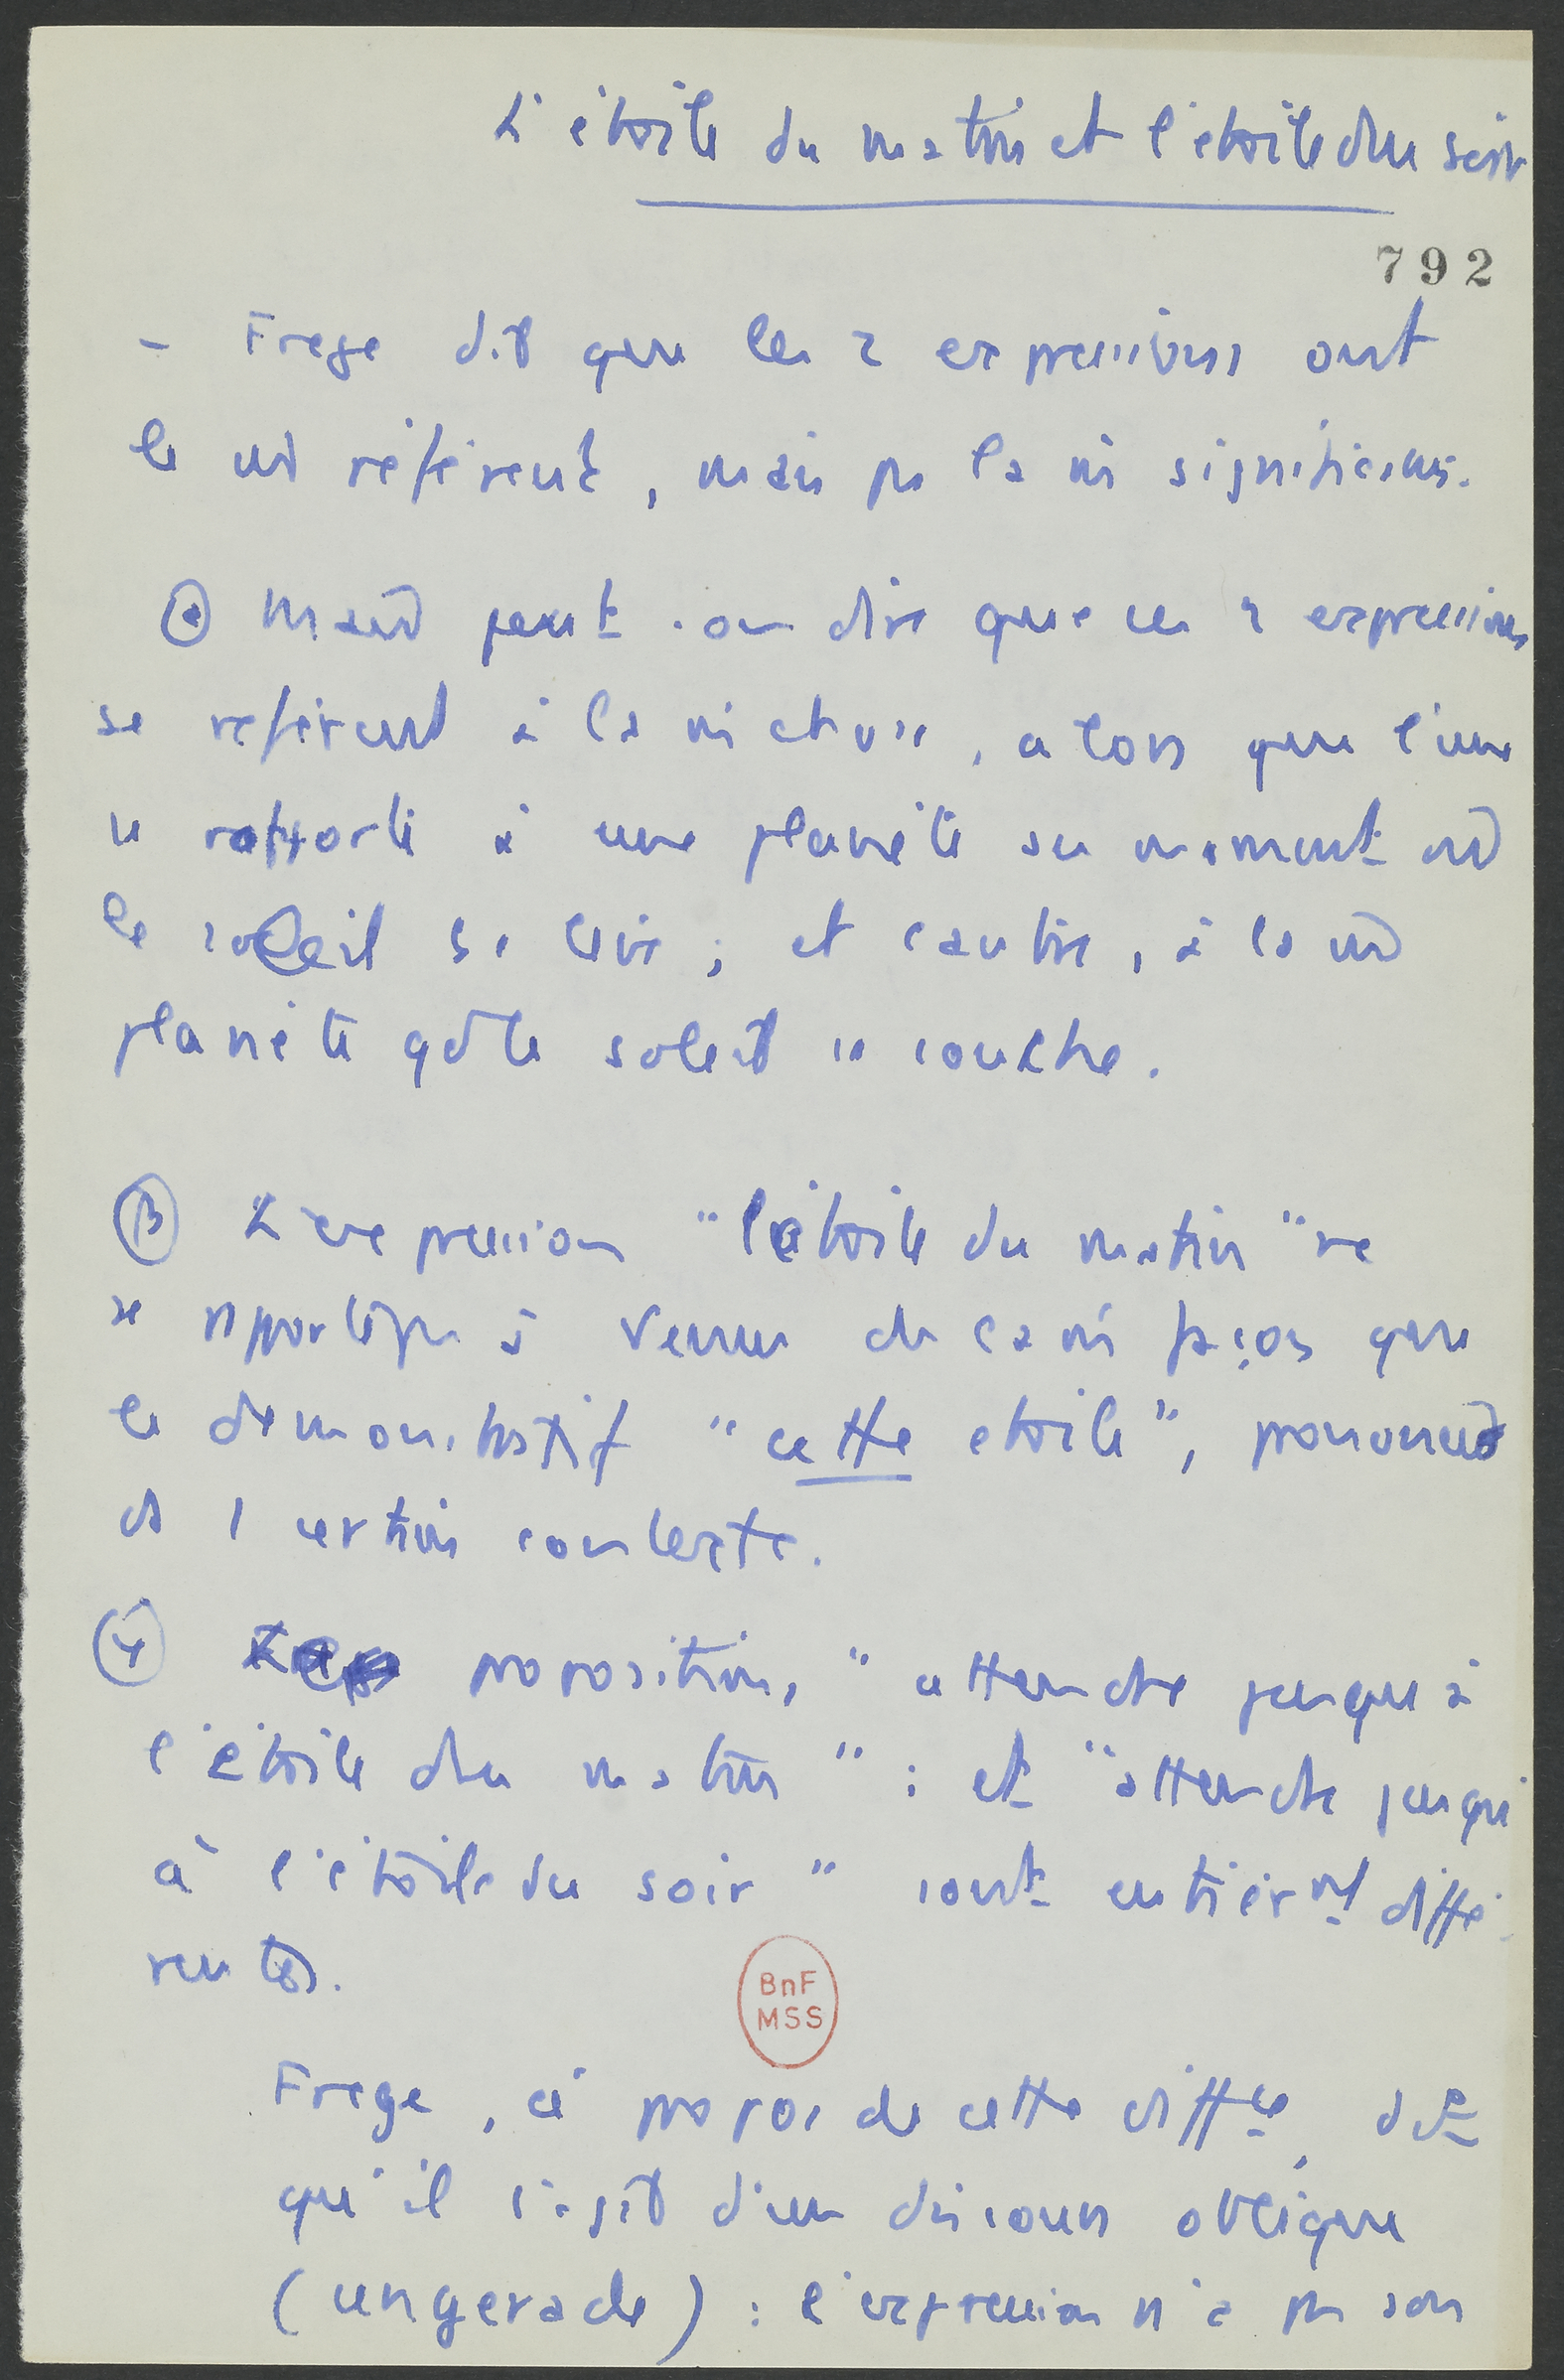 L'étoile du matin et l'étoile du soir
792
- Frege dit que les 2 expressions ont
le m̂ référent, mais pas la m̂ significat°.
ⓐ Mais peut-on dire que ces 2 expressions
se réfèrent à la m̂ chose, alors que l'une
se rapporte à une planète au moment où
le soleil se lève ; et l'autre, à la m̂
planète qd le soleil se couche.
ⓑ L'expression "l'étoile du matin" ne
se rapporte pas à Vénus de la m̂ façon que
le démonstratif "cette étoile", prononcé
ds 1 certain contexte.
ⓨ propositions "attendre jusqu'à
l'étoile du matin" : et "attendre jusqu'
à l'étoile du soir" sont entièrmt diffé-
rentes.
BnF
MSS
Frege, à propos de cette différce, dit
qu'il s'agit d'un discours oblique
(ungerade) : l'expression n'a pas son